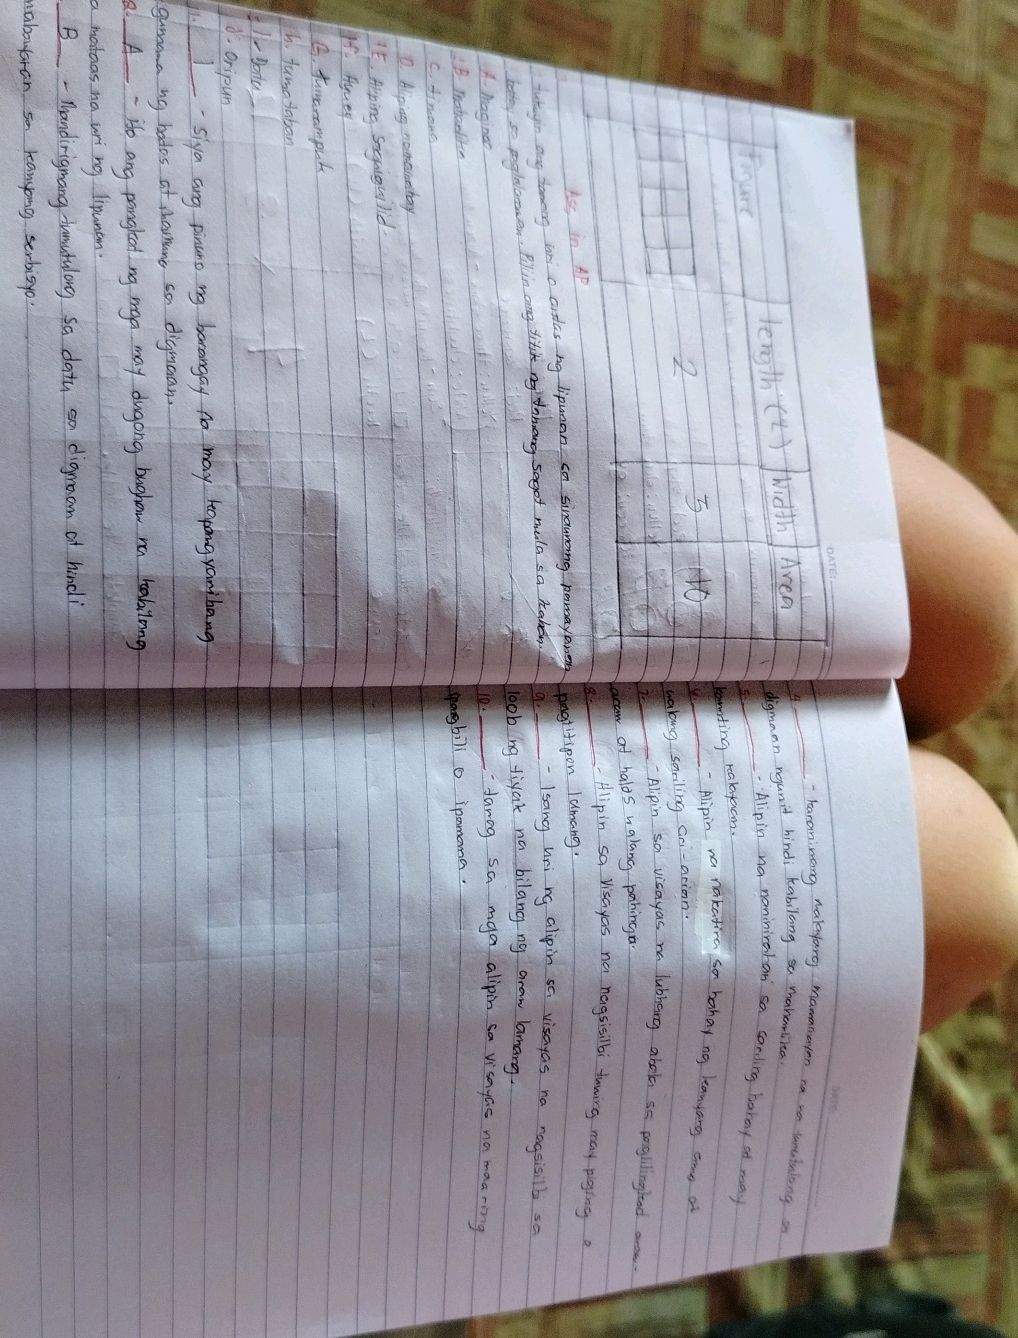 DATE:
Figure Length (L) Width Area
2 5 10
Ass. in AP
Tukuyin ang tamang uri o antas ng lipunan sa sinaunang pamayanan
batay sa paglalarawan. Piliin ang titik ng tamang sagot mula sa kahon.
A. Maginoo
B. Maharlika
C. timawa
D. Aliping namamahay
E. Aliping Saguiguilid.
F. Ayuey
G. tumarampuk
H. tumataban
I. Datu
J. Oripun
1. I - Siya ang pinuno ng barangay na may kapangyarihang
gumawa ng batas at mamuno sa digmaan.
2. A - ito ang pangkat ng mga may dugong bughaw na kabilang
a mataas na uri ng lipunan.
B - Mandirigmang tumutulong sa datu sa digmaan at hindi
nabayaran sa kanyang serbisyo.
DATE:
4. - karaniwang malayang mamamayan na na tumutulong sa
digmaan ngunit hindi kabilang sa maharlika.
5. - Alipin na naninirahan sa sariling bahay at may
kaunting kalayaan.
6. - Alipin na nakatira sa bahay ng kanyang amo at
walang sariling ari-arian.
7. - Alipin sa visayas na lubhang abala sa paglilingkod araw-
araw at halos walang pahinga.
8. - Alipin sa Visayas na nagsisilbi tuwing may piging o
pagtitipon lamang.
9. - Isang uri ng alipin sa visayas na nagsisilbi sa
loob ng tiyak na bilang ng araw lamang.
10. - tawag sa mga alipin sa visayas na maaring
ipangbili o ipamana.